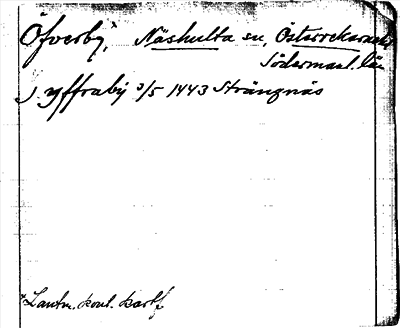 Öfverby, Näshulta sn, Österrekarne hd
Södermanl. län
J yffraby 3/5 1443 Strängnäs
Lantm. kont. kartf